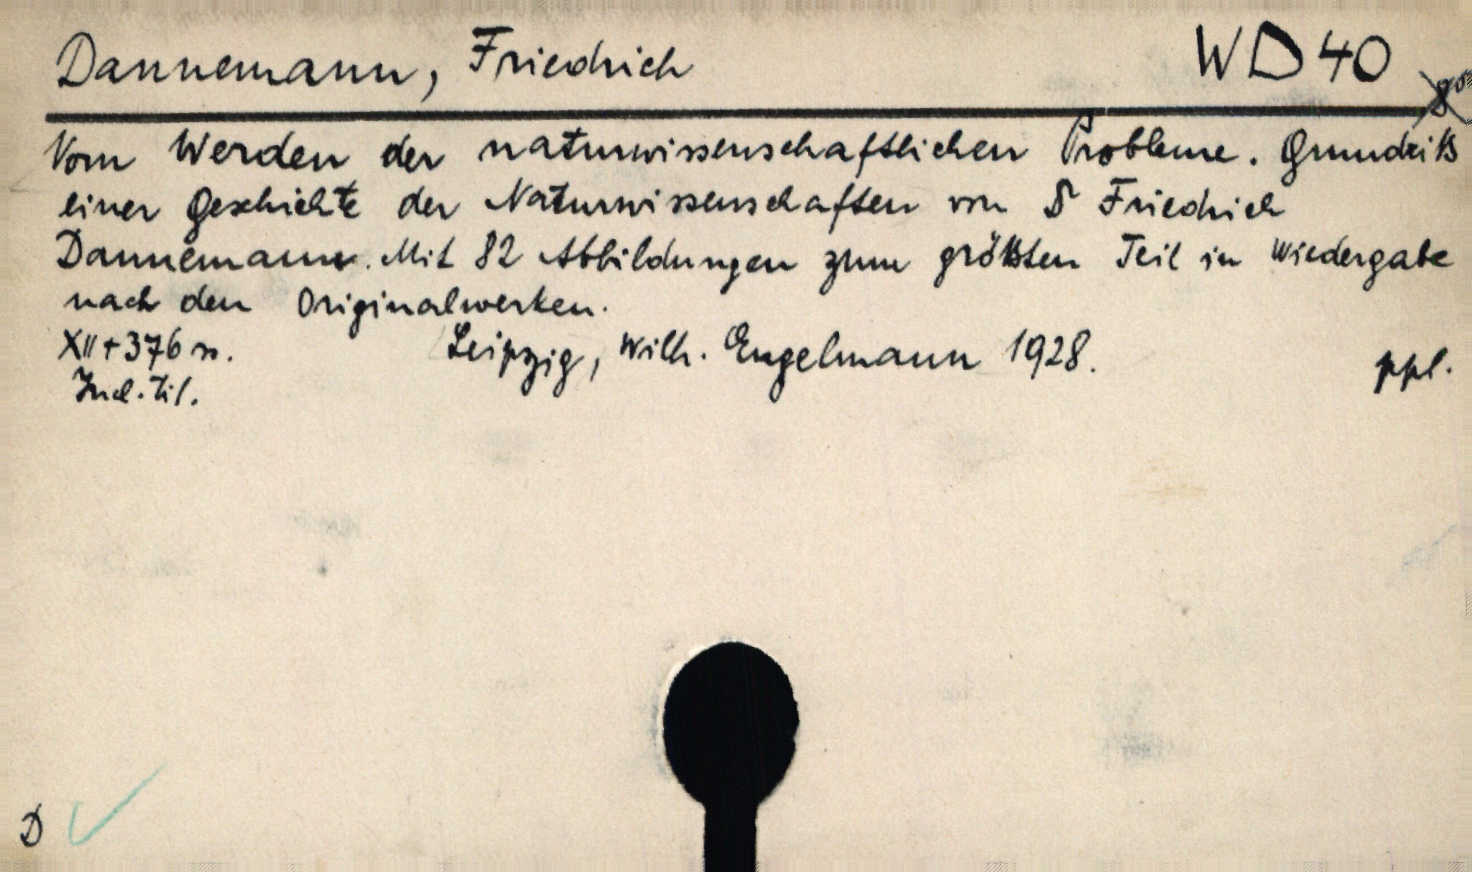 Dannemann, Friedrich WD 40
8°
Vom Werden der naturwissenschaftlichen Probleme. Grundriß
einer Geschichte der Naturwissenschaften von Friedrich
Dannemann. Mit 82 Abbildungen zum größten Teil in Wiedergabe
nach den Originalwerken.
XII+376 s. Leipzig, Wilh. Engelmann 1928. ppl.
Ind. til.
D